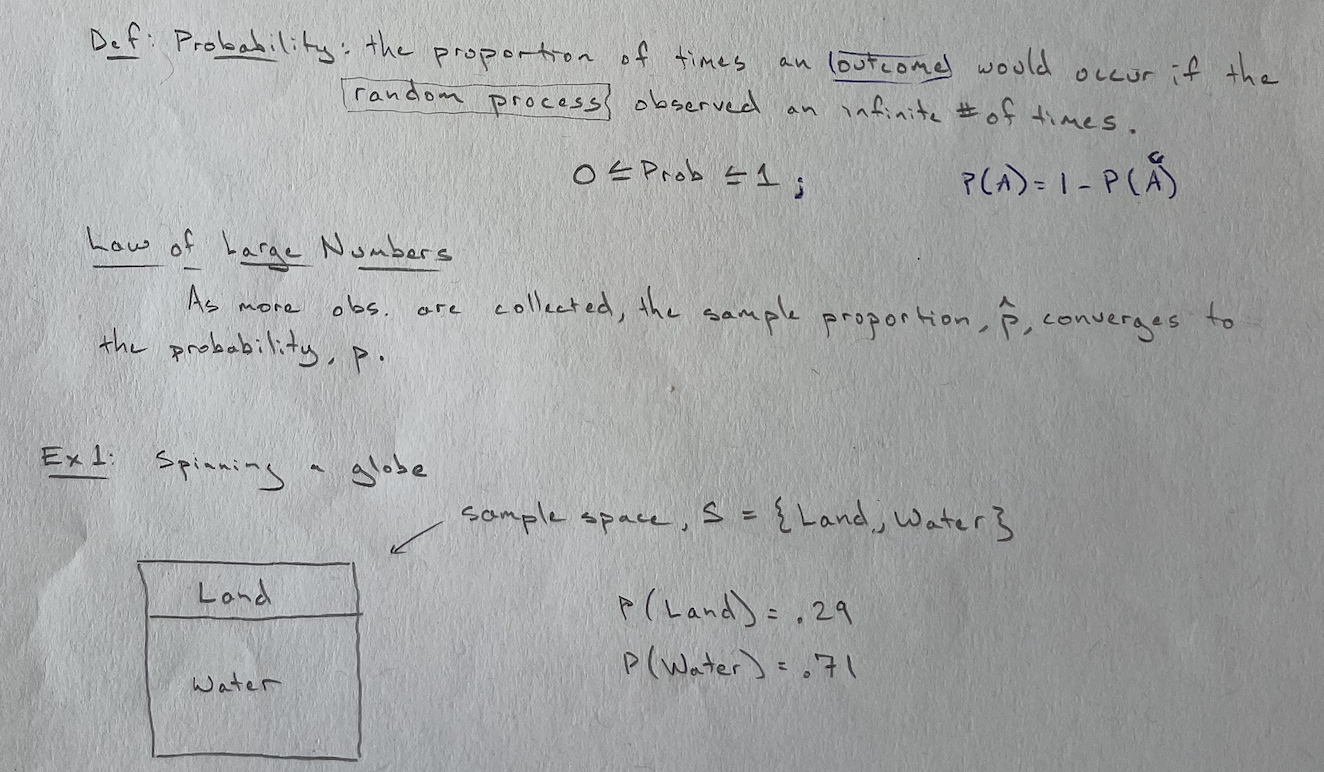 Def: Probability: the proportion of times an outcome would occur if the
random process observed an infinite # of times.
0 ≤ Prob ≤ 1; P(A) = 1 - P(Aᶜ)
Law of Large Numbers
As more obs. are collected, the sample proportion, p̂, converges to
the probability, p.
Ex 1: Spinning a globe
sample space, S = {Land, Water}
Land
P(Land) = .29
Water
P(Water) = .71